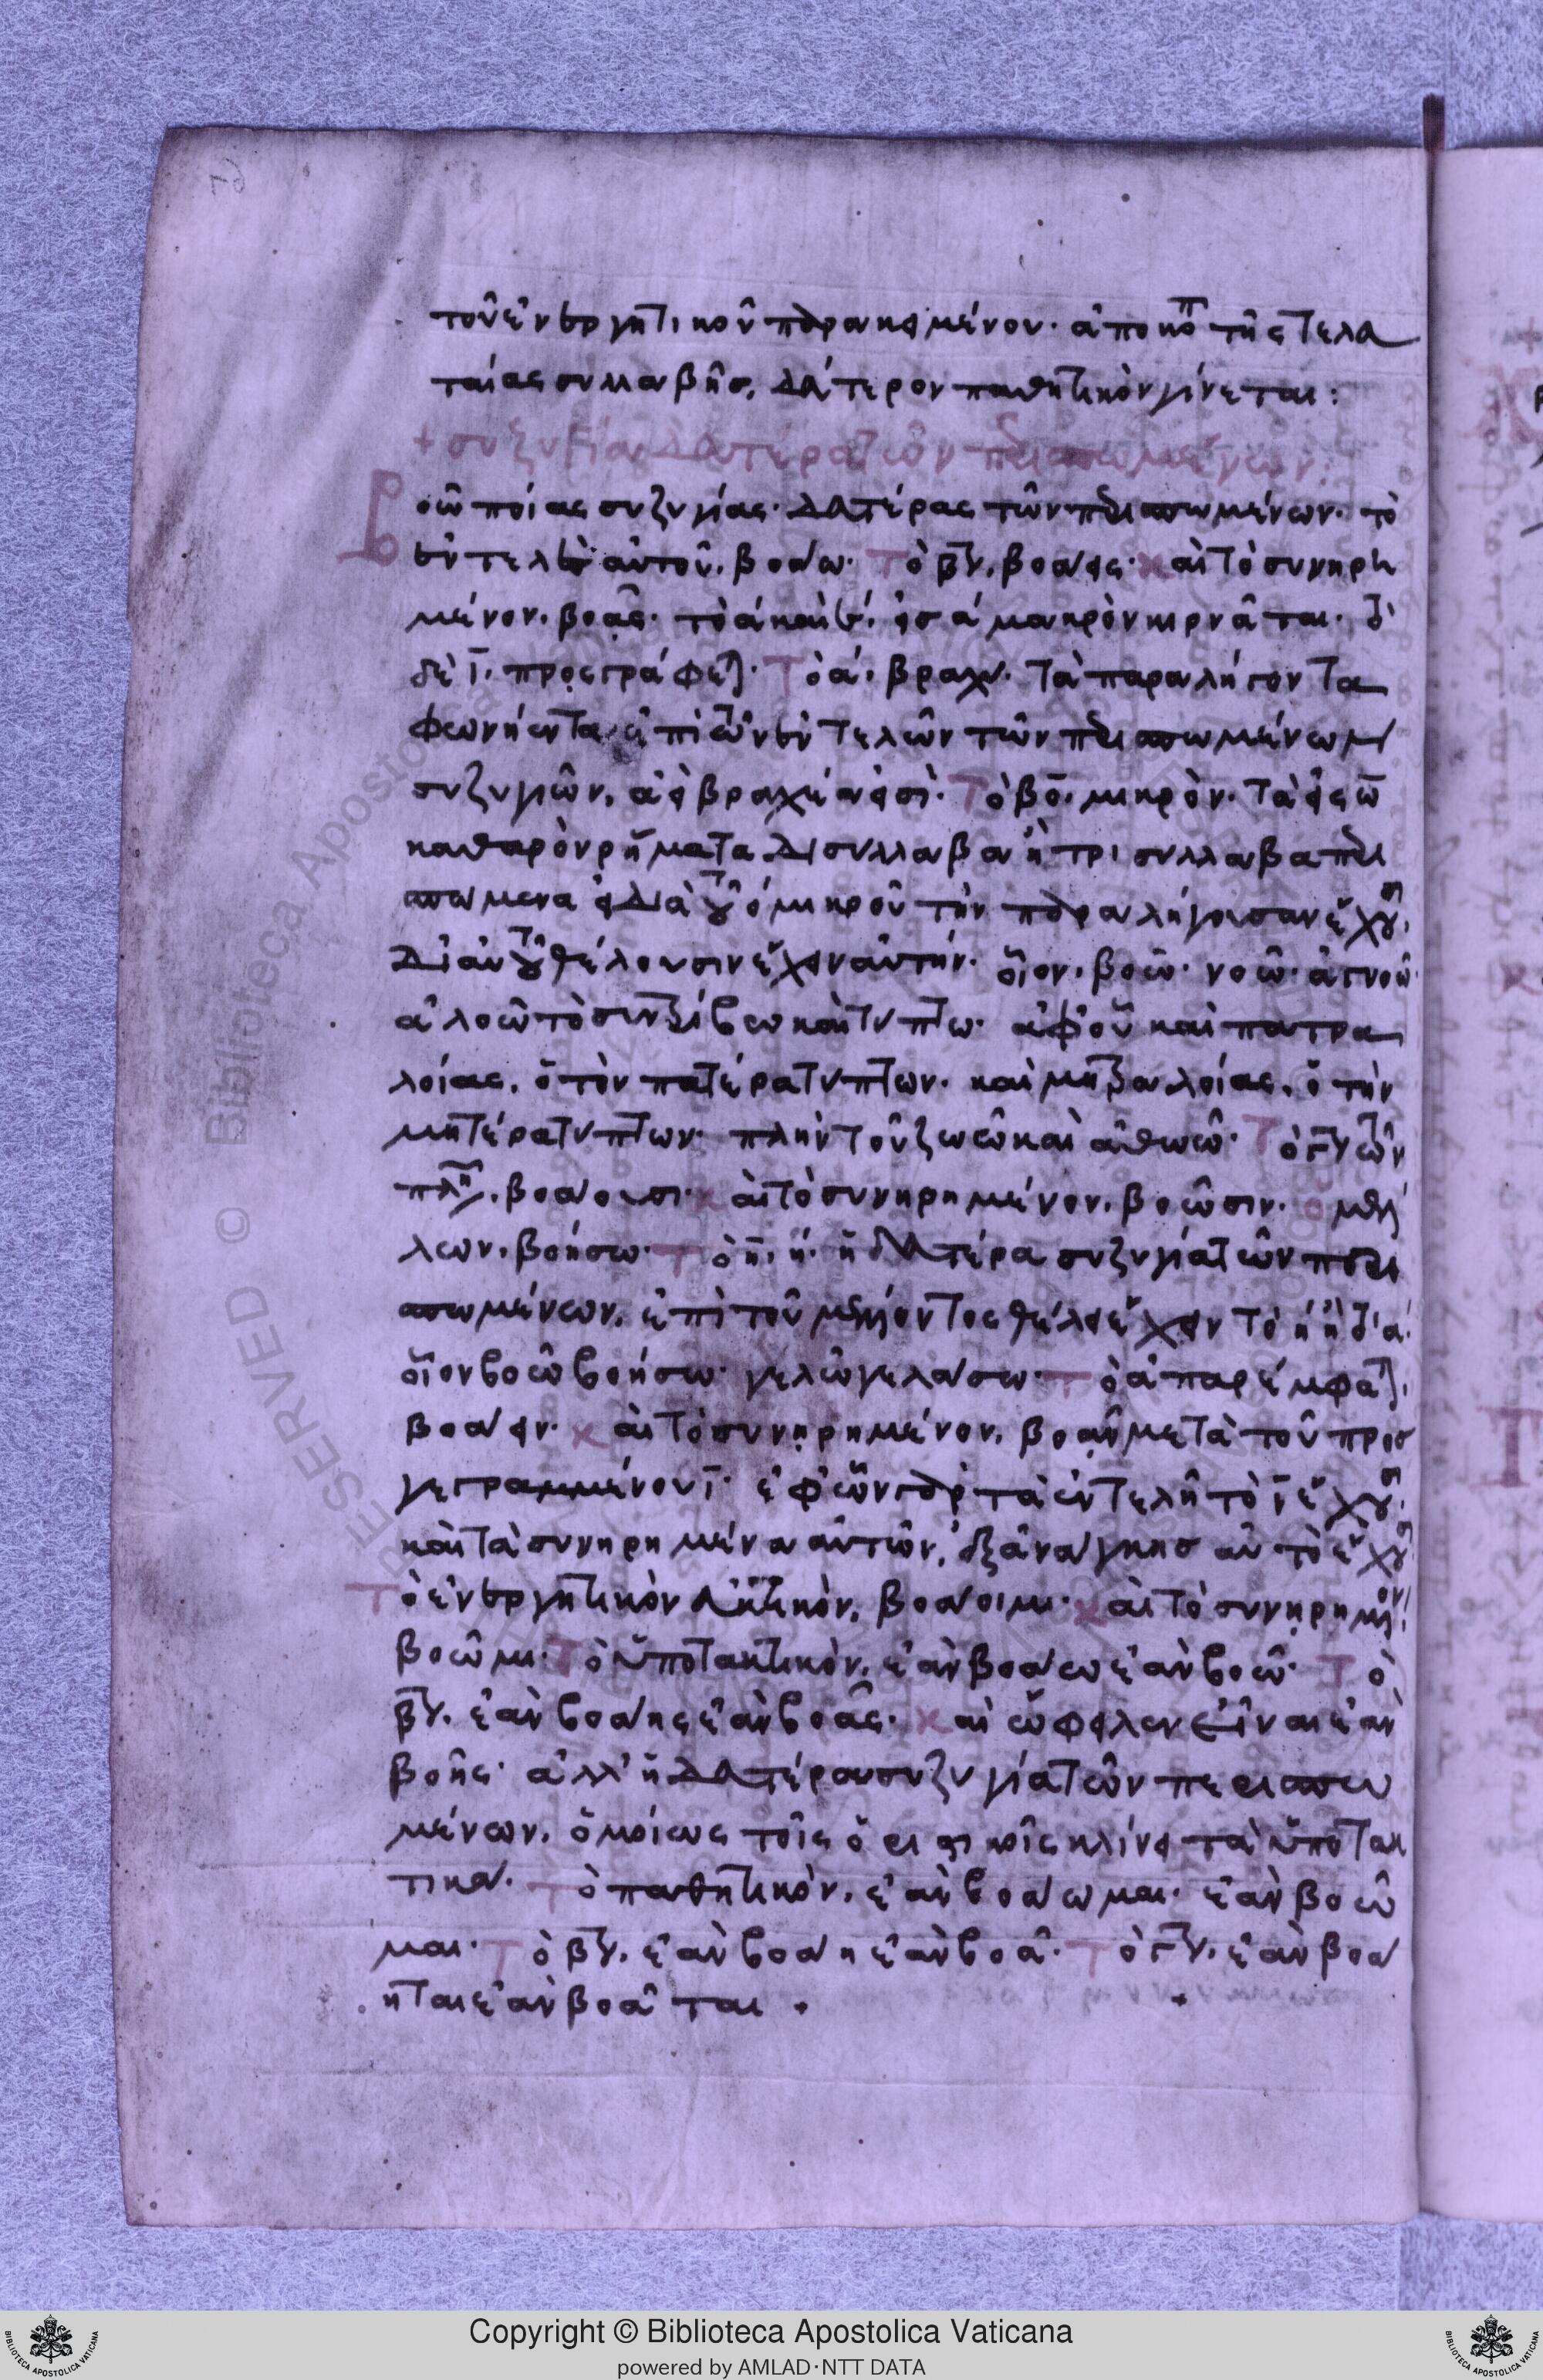 τοῦ ἐνεργητικοῦ παρακειμένου· ἀποκοπῇ τῆς τελευ
ταίας συλλαβῆς, δεύτερον παθητικὸν γίνεται:
+ συζυγία δευτέρα τῶν περισπωμένων:
Βοῶ ποίας συζυγίας· δευτέρας τῶν περισπωμένων· τὸ
ἐντελὲς αὐτοῦ, βοάω· Τὸ βον, βοάεις· καὶ τὸ συνηρη
μένον, βοᾷς· τὸ α καὶ ε, εἰς α μακρὸν κιρνᾶται· τὸ
δὲ ι, προσγράφεται· Τὸ α, βραχύ· τὰ παραλήγοντα
φωνήεντα ἐπὶ τῶν ἐντελῶν τῶν περισπωμένων
συζυγιῶν, ἀεὶ βραχέα εἰσί· Τὸ βο, μικρὸν· τὰ εἰς ω
καθαρὸν ῥήματα δισύλλαβα ἢ τρισύλλαβα περι
σπώμενα εἰ διὰ τοῦ ο μικροῦ τὴν παραλήγουσαν ἔχουσι,
δι' αὐτοῦ θέλουσιν ἔχειν αὐτήν· οἷον, βοῶ· νοῶ· ἀγνοῶ·
ἀλοῶ τὸ συντρίβω καὶ τύπτω· ἀφ' οὗ καὶ πατρα
λοίας, ὁ τὸν πατέρα τύπτων· καὶ μητραλοίας, ὁ τὴν
μητέρα τύπτων· πλὴν τοῦ ζωῶ καὶ ἀθωῶ· Τὸ γον τῶν
πλη, βοάουσι· καὶ τὸ συνηρημένον, βοῶσιν· ὁ μέλ
λων, βοήσω· Τὸ η, η· ἡ δευτέρα συζυγία τῶν περι
σπωμένων, ἐπὶ τοῦ μέλλοντος θέλει ἔχειν τὸ η ἢ τὸ α·
οἷον βοῶ βοήσω· γελῶ γελάσω· Τὸ ἀπαρέμφατον,
βοάειν· καὶ τὸ συνηρημένον, βοᾷν μετὰ τοῦ προσ
γεγραμμένου ι· ἐφ' ὧν γὰρ τὰ ἐντελῆ τὸ ι ἔχουσι,
καὶ τὰ συνηρημένα αὐτῶν, ἐξ ἀνάγκης αὐτὸ ἔχουσι
Τὸ ἐνεργητικὸν εὐκτικὸν, βοάοιμι· καὶ τὸ συνηρημένον,
βοῷμι· Τὸ ὑποτακτικὸν, ἐὰν βοάω ἐὰν βοῶ· Τὸ
βον, ἐὰν βοάῃς ἐὰν βοᾷς· καὶ ὤφειλεν εἶναι ἐὰν
βοῇς· ἀλλ' ἡ δευτέρα συζυγία τῶν περισπω
μένων, ὁμοίως τοῖς ὁριστικοῖς κλίνει τὰ ὑποτακ
τικά· Τὸ παθητικὸν, ἐὰν βοάωμαι· ἐὰν βοῶ
μαι· Τὸ βον, ἐὰν βοάῃ ἐὰν βοᾷ· Τὸ γον, ἐὰν βοά
ηται ἐὰν βοᾶται·
Copyright © Biblioteca Apostolica Vaticana
powered by AMLAD·NTT DATA